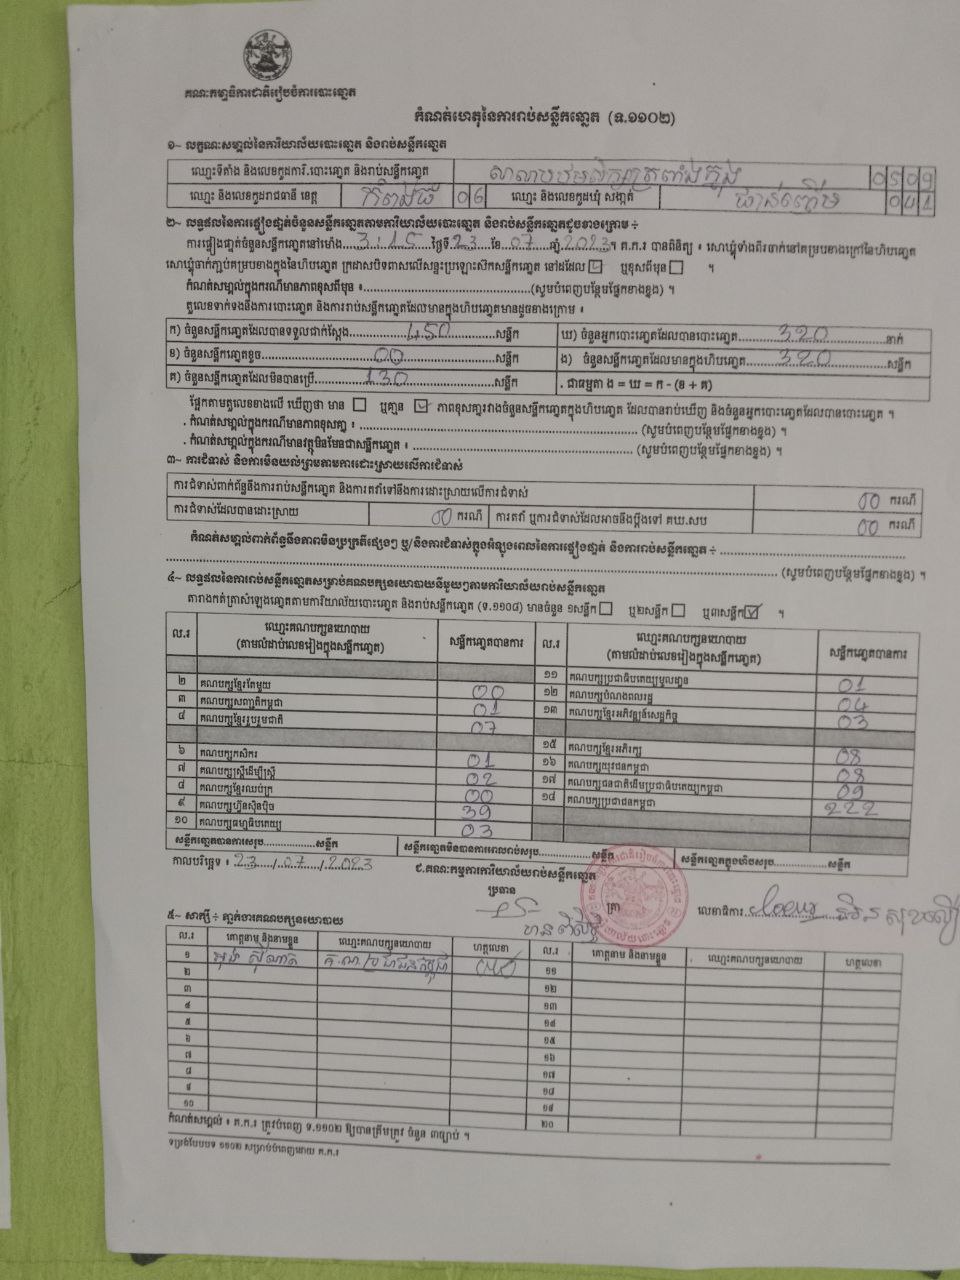 គណៈកម្មាធិការជាតិរៀបចំការបោះឆ្នោត
កំណត់ហេតុនៃការរាប់សន្លឹកឆ្នោត (ទ.១១០២)
១~ លក្ខណៈសម្គាល់នៃការិយាល័យបោះឆ្នោត និងរាប់សន្លឹកឆ្នោត
ឈ្មោះទីតាំង និងលេខកូដការិ.បោះឆ្នោត និងរាប់សន្លឹកឆ្នោត 0509
ឈ្មោះ និងលេខកូដរាជធានី ខេត្ត កំពង់ធំ 06 ឈ្មោះ និងលេខកូដឃុំ សង្កាត់ 041
២~ លទ្ធផលនៃការផ្ទៀងផ្ទាត់ចំនួនសន្លឹកឆ្នោតតាមការិយាល័យបោះឆ្នោត និងរាប់សន្លឹកឆ្នោតដូចខាងក្រោម ÷
ការផ្ទៀងផ្ទាត់ចំនួនសន្លឹកឆ្នោតនៅម៉ោង 3:15 ថ្ងៃទី 23 ខែ 07 ឆ្នាំ 2023។ គ.ក.រ បានពិនិត្យ ៖ សោឃ្លុំទាំងពីរចាក់នៅគម្របខាងក្រៅនៃហិបឆ្នោត
សោឃ្លុំចាក់ភ្ជាប់គម្របខាងក្នុងនៃហិបឆ្នោត ក្រដាសបិទពាសលើសន្ទះប្រឡោះស៊កសន្លឹកឆ្នោត នៅដដែល ☑ ឬខុសពីមុន ☐ ។
កំណត់សម្គាល់ក្នុងករណីមានភាពខុសពីមុន ៖ (សូមបំពេញបន្ថែមផ្នែកខាងខ្នង) ។
តួលេខទាក់ទងនឹងការបោះឆ្នោត និងការរាប់សន្លឹកឆ្នោតដែលមានក្នុងហិបឆ្នោតមានដូចខាងក្រោម ៖
ក) ចំនួនសន្លឹកឆ្នោតដែលបានទទួលជាក់ស្តែង 450 សន្លឹក ឃ) ចំនួនអ្នកបោះឆ្នោតដែលបានបោះឆ្នោត 320 នាក់
ខ) ចំនួនសន្លឹកឆ្នោតខូច 00 សន្លឹក ង) ចំនួនសន្លឹកឆ្នោតដែលមានក្នុងហិបឆ្នោត 320 សន្លឹក
គ) ចំនួនសន្លឹកឆ្នោតដែលមិនបានប្រើ 130 សន្លឹក . ជាធម្មតា ង = ឃ = ក - (ខ + គ)
ផ្អែកតាមតួលេខខាងលើ ឃើញថា មាន ☐ ឬគ្មាន ☑ ភាពខុសគ្នារវាងចំនួនសន្លឹកឆ្នោតក្នុងហិបឆ្នោត ដែលបានរាប់ឃើញ និងចំនួនអ្នកបោះឆ្នោតដែលបានបោះឆ្នោត ។
. កំណត់សម្គាល់ក្នុងករណីមានភាពខុសគ្នា ៖ (សូមបំពេញបន្ថែមផ្នែកខាងខ្នង) ។
. កំណត់សម្គាល់ក្នុងករណីមានវត្ថុមិនមែនជាសន្លឹកឆ្នោត ៖ (សូមបំពេញបន្ថែមផ្នែកខាងខ្នង) ។
៣~ ការជំទាស់ និងការមិនយល់ព្រមតាមការដោះស្រាយលើការជំទាស់
ការជំទាស់ពាក់ព័ន្ធនឹងការរាប់សន្លឹកឆ្នោត និងការតវ៉ាទៅនឹងការដោះស្រាយលើការជំទាស់ 00 ករណី
ការជំទាស់ដែលបានដោះស្រាយ 00 ករណី ការតវ៉ា ឬការជំទាស់ដែលអាចនឹងប្តឹងទៅ គឃ.សប 00 ករណី
កំណត់សម្គាល់ពាក់ព័ន្ធនឹងភាពមិនប្រក្រតីផ្សេងៗ ឬ/និងការជំទាស់ក្នុងអំឡុងពេលនៃការផ្ទៀងផ្ទាត់ និងការរាប់សន្លឹកឆ្នោត ÷
(សូមបំពេញបន្ថែមផ្នែកខាងខ្នង) ។
៤~ លទ្ធផលនៃការរាប់សន្លឹកឆ្នោតសម្រាប់គណបក្សនយោបាយនីមួយៗតាមការិយាល័យរាប់សន្លឹកឆ្នោត
តារាងកត់ត្រាសំឡេងឆ្នោតតាមការិយាល័យបោះឆ្នោត និងរាប់សន្លឹកឆ្នោត (ទ.១១០៨) មានចំនួន ១សន្លឹក ☐ ឬ២សន្លឹក ☐ ឬ៣សន្លឹក ☑ ។
ល.រ ឈ្មោះគណបក្សនយោបាយ (តាមលំដាប់លេខរៀងក្នុងសន្លឹកឆ្នោត) សន្លឹកឆ្នោតបានការ ល.រ ឈ្មោះគណបក្សនយោបាយ (តាមលំដាប់លេខរៀងក្នុងសន្លឹកឆ្នោត) សន្លឹកឆ្នោតបានការ
១១ គណបក្សប្រជាធិបតេយ្យមូលដ្ឋាន 01
២ គណបក្សខ្មែរតែមួយ 00 ១២ គណបក្សបំណងពលរដ្ឋ 04
៣ គណបក្សសញ្ជាតិកម្ពុជា 01 ១៣ គណបក្សខ្មែរអភិវឌ្ឍន៍សេដ្ឋកិច្ច 03
៤ គណបក្សខ្មែររួបរួមជាតិ 07
១៥ គណបក្សខ្មែរអភិរក្ស 08
៦ គណបក្សកសិករ 01 ១៦ គណបក្សយុវជនកម្ពុជា 08
៧ គណបក្សស្ត្រីដើម្បីស្ត្រី 02 ១៧ គណបក្សជនជាតិដើមប្រជាធិបតេយ្យកម្ពុជា 09
៨ គណបក្សខ្មែរឈប់ក្រ 00 ១៨ គណបក្សប្រជាជនកម្ពុជា 222
៩ គណបក្សហ៊្វុនស៊ិនប៉ិច 39
១០ គណបក្សធម្មាធិបតេយ្យ 03
សន្លឹកឆ្នោតបានការសរុប សន្លឹក សន្លឹកឆ្នោតមិនបានការពេលរាប់សរុប សន្លឹក សន្លឹកឆ្នោតក្នុងហិបសរុប សន្លឹក
កាលបរិច្ឆេទ ៖ 23/07/2023 ជ.គណៈកម្មការការិយាល័យរាប់សន្លឹកឆ្នោត
ប្រធាន
ត្រា លេខាធិការ
៥~ សាក្សី ÷ ភ្នាក់ងារគណបក្សនយោបាយ
ល.រ គោត្តនាម និងនាមខ្លួន ឈ្មោះគណបក្សនយោបាយ ហត្ថលេខា ល.រ គោត្តនាម និងនាមខ្លួន ឈ្មោះគណបក្សនយោបាយ ហត្ថលេខា
១ គ.ណ.ប្រជាជនកម្ពុជា ១១
២ ១២
៣ ១៣
៤ ១៤
៥ ១៥
៦ ១៦
៧ ១៧
៨ ១៨
៩ ១៩
១០ ២០
កំណត់សម្គាល់ ៖ គ.ក.រ ត្រូវបំពេញ ទ.១១០២ ឱ្យបានត្រឹមត្រូវ ចំនួន ៣ច្បាប់ ។
ទម្រង់បែបបទ ១១០២ សម្រាប់បំពេញដោយ គ.ក.រ